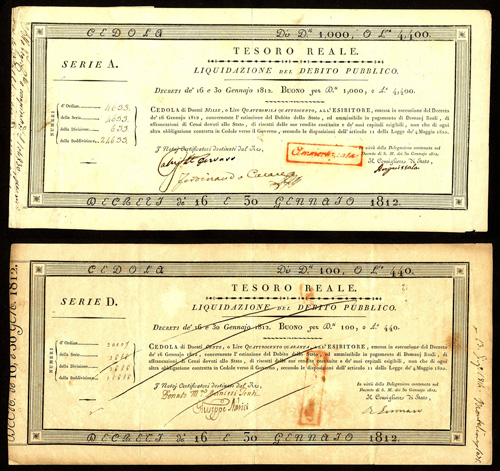 CEDOLA Di D.ⁱ 1,000, O L.ᵉ 4,400.
TESORO REALE.
SERIE A.
LIQUIDAZIONE DEL DEBITO PUBBLICO.
DECRETI de' 16 e 30 Gennajo 1812. BUONO per D.ⁱ 1,000, o L.ᵉ 4,400.
NUMERI
d'Ordine
della Serie
della Divisione
della Suddivisione
4633
4633
633
CEDOLA di Ducati MILLE, o Lire QUATTROMILA QUATTROCENTO, ALL'ESIBITORE, emessa in esecuzione del Decreto
de' 16 Gennajo 1812, concernente l'estinzione del Debito dello Stato, ed ammissibile in pagamento di Demanj Reali, di
affrancazioni di Censi dovuti allo Stato, di riscatti delle sue rendite costituite e de' suoi capitali esigibili, non che di ogni
altra obbligazione contratta in Cedole verso il Governo, secondo le disposizioni dell'articolo 11 della Legge de' 4 Maggio 1810.
I Notaj Certificatori destinati dal Re,
Ferdinando
In virtù della Delegazione contenuta nel
Decreto di S. M. de' 30 Gennajo 1812.
Il Consigliere di Stato,
DECRETI de' 16 E 30 GENNAJO 1812.
CEDOLA Di D.ⁱ 100, O L.ᵉ 440.
TESORO REALE.
SERIE D.
LIQUIDAZIONE DEL DEBITO PUBBLICO.
DECRETI de' 16 e 30 Gennajo 1812. BUONO per DUCATI 100, o L.ᵉ 440.
NUMERI
d'Ordine
della Serie
della Divisione
della Suddivisione
CEDOLA di Ducati CENTO, o Lire QUATTROCENTO QUARANTA, ALL'ESIBITORE, emessa in esecuzione del Decreto
de' 16 Gennajo 1812, concernente l'estinzione del Debito dello Stato, ed ammissibile in pagamento di Demanj Reali, di
affrancazioni di Censi dovuti allo Stato, di riscatti delle sue rendite costituite e de' suoi capitali esigibili, non che di ogni
altra obbligazione contratta in Cedole verso il Governo, secondo le disposizioni dell'articolo 11 della Legge de' 4 Maggio 1810.
I Notaj Certificatori destinati dal Re,
Donato
Giuseppe
In virtù della Delegazione contenuta nel
Decreto di S. M. de' 30 Gennajo 1812.
Il Consigliere di Stato,
DECRETI de' 16 E 30 GENNAJO 1812.